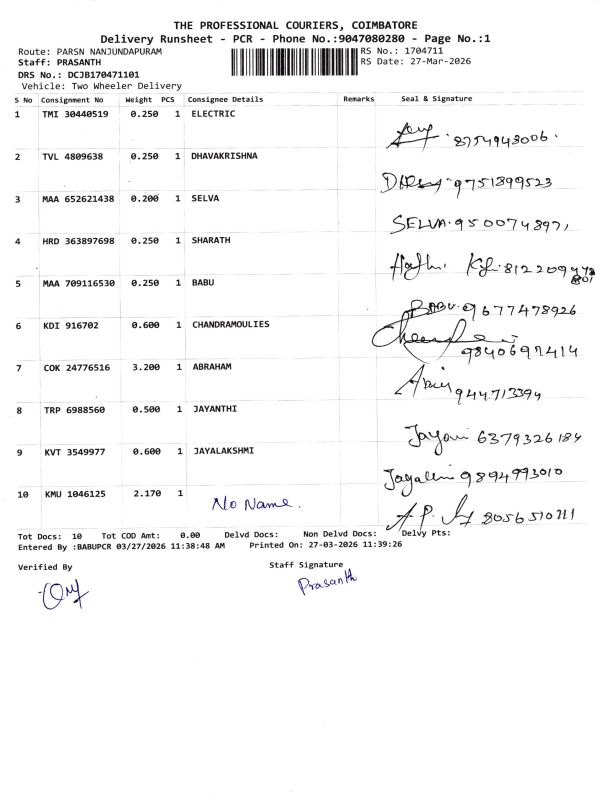 THE PROFESSIONAL COURIERS, COIMBATORE
Delivery Runsheet - PCR - Phone No.:9047080280 - Page No.:1
Route: PARSN NANJUNDAPURAM RS No.: 1704711
Staff: PRASANTH RS Date: 27-Mar-2026
DRS No.: DCJB170471101
Vehicle: Two Wheeler Delivery
S No Consignment No Weight PCS Consignee Details Remarks Seal & Signature
1 TMI 30440519 0.250 1 ELECTRIC
8754943006.
2 TVL 4809638 0.250 1 DHAVAKRISHNA
9751899523
3 MAA 652621438 0.200 1 SELVA
SELVA. 9500748971
4 HRD 363897698 0.250 1 SHARATH
5 MAA 709116530 0.250 1 BABU
BABU. 9677478926
6 KDI 916702 0.600 1 CHANDRAMOULIES
9840697414
7 COK 24776516 3.200 1 ABRAHAM
944713394
8 TRP 6988560 0.500 1 JAYANTHI
6379326184
9 KVT 3549977 0.600 1 JAYALAKSHMI
9894993010
10 KMU 1046125 2.170 1 No Name.
A.P. 8056510111
Tot Docs: 10 Tot COD Amt: 0.00 Delvd Docs: Non Delvd Docs: Delvy Pts:
Entered By :BABUPCR 03/27/2026 11:38:48 AM Printed On: 27-03-2026 11:39:26
Verified By Staff Signature
Prasanth